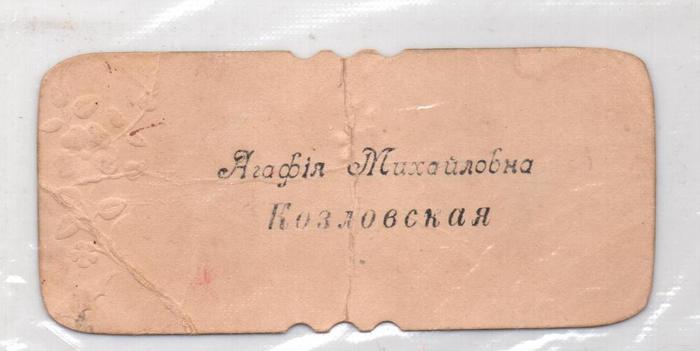 Агафія Михайловна
Козловская